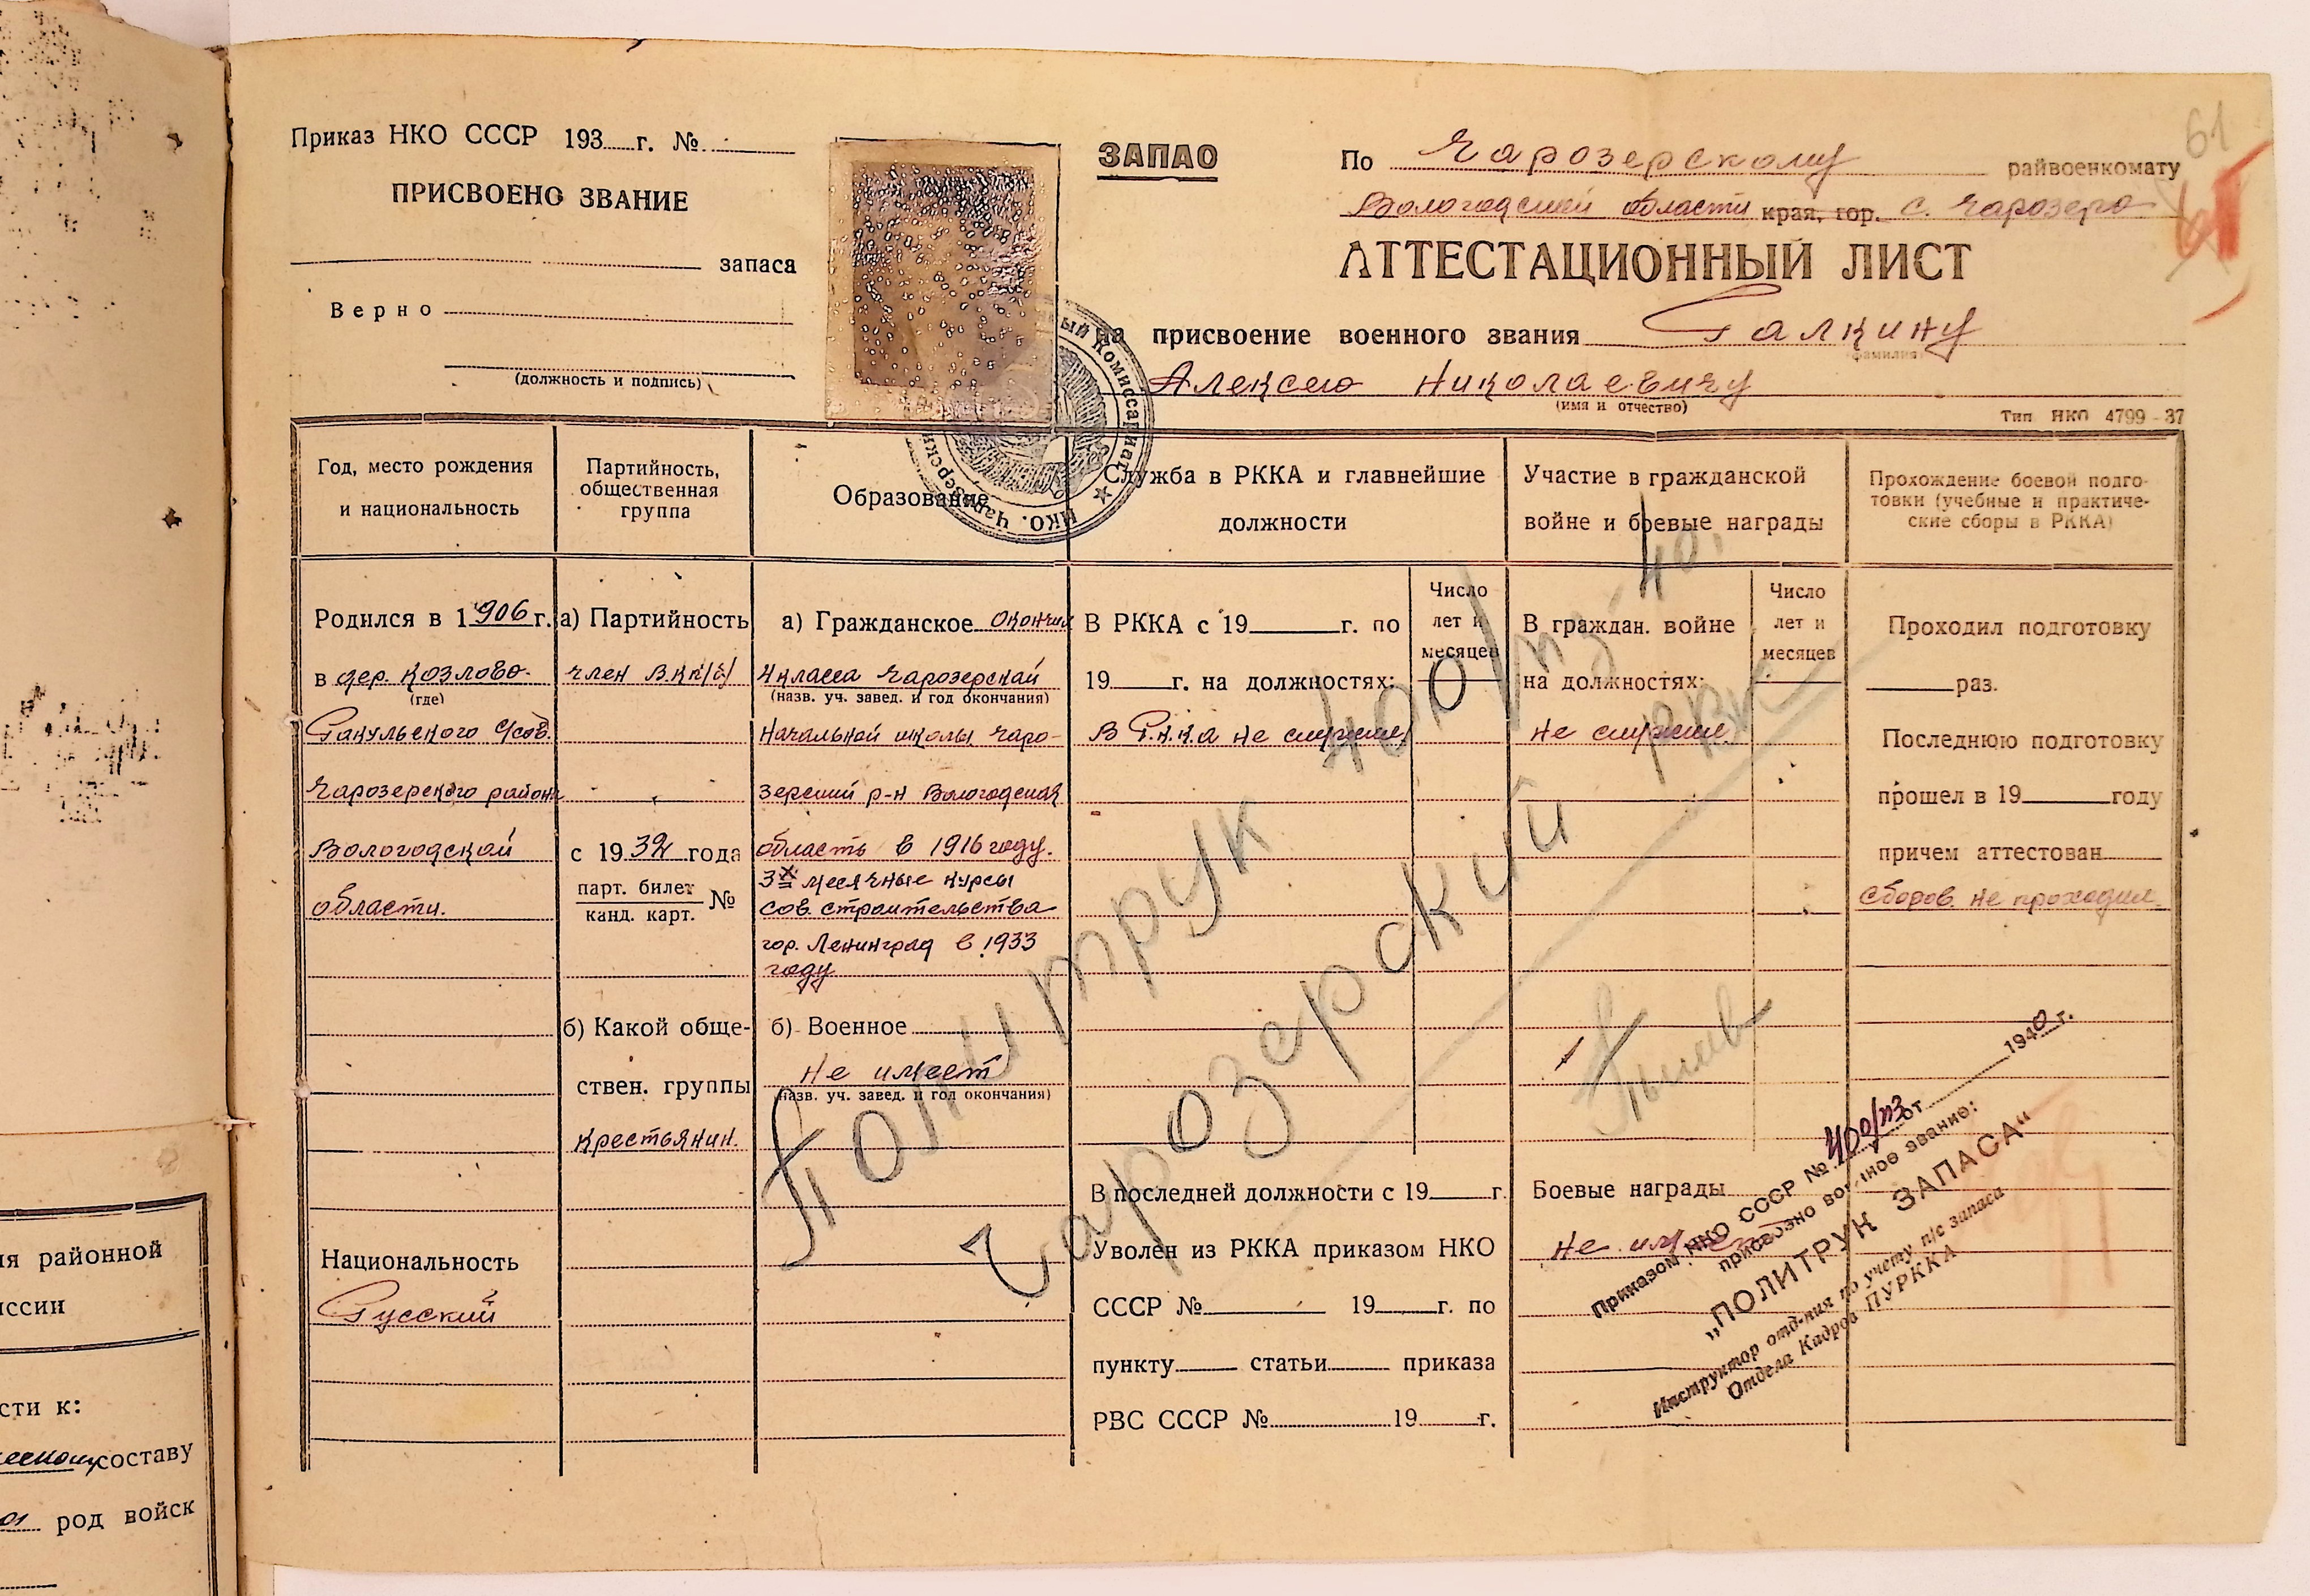 Приказ НКО СССР 193 г. №
ПРИСВОЕНО ЗВАНИЕ
запаса
Верно
(должность и подпись)
ЗАПАО
61
По Чарозерскому райвоенкомату
Вологодской области края, гор. с. Чарозеро
АТТЕСТАЦИОННЫЙ ЛИСТ
на присвоение военного звания Галкину
фамилия
Алексею Николаевичу
(имя и отчество)
Тип. НКО 4799 - 37
Год, место рождения
и национальность
Партийность,
общественная
группа
Образование
Служба в РККА и главнейшие
должности
Участие в гражданской
войне и боевые награды
Прохождение боевой подго-
товки (учебные и практиче-
ские сборы в РККА)
Родился в 1906 г.
в дер. Козлово
(где)
Чарозерского района
Вологодской
области.
Национальность
Русский
а) Партийность
член ВКП(б)
с 1932 года
парт. билет
канд. карт. №
б) Какой обще-
ствен. группы
крестьянин.
а) Гражданское окончил
4 класса Чарозерской
(назв. уч. завед. и год окончания)
начальной школы Чаро-
зерский р-н Вологодская
область в 1916 году.
3х месячные курсы
сов. строительства
гор. Ленинград в 1933
году
б) Военное
не имеет
(назв. уч. завед. и год окончания)
В РККА с 19 г. по
19 г. на должностях:
В Р.К.К.А не служил
Число
лет и
месяцев
В последней должности с 19 г.
Уволен из РККА приказом НКО
СССР № 19 г. по
пункту статьи приказа
РВС СССР № 19 г.
В граждан. войне
на должностях:
не служил
Число
лет и
месяцев
Боевые награды
не имеет
Проходил подготовку
раз.
Последнюю подготовку
прошел в 19 году
причем аттестован
сборов не проходил.
Политрук 400/пз-40.
Чарозерский РВК
Приказом НКО СССР № 400/пз от 1940 г.
присвоено военное звание:
„ПОЛИТРУК ЗАПАСА"
Инструктор отд-ния по учету п/с запаса
Отдела Кадров ПУРККА
НКО. Чарозерский Комиссариат
ия районной
иссии
сти к:
составу
род войск